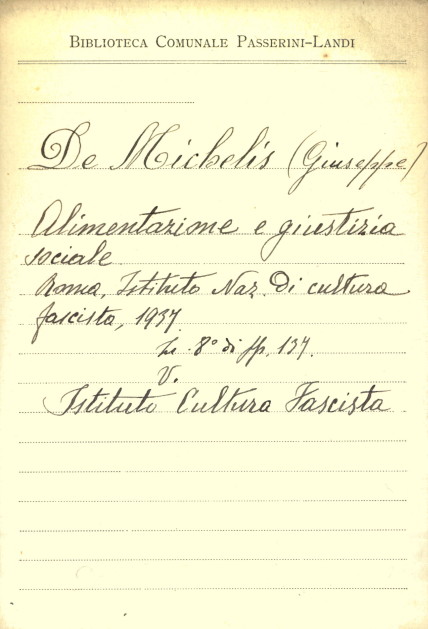 BIBLIOTECA COMUNALE PASSERINI-LANDI
De Michelis (Giuseppe)
Alimentazione e giustizia
sociale
Roma, Istituto Naz. di cultura
fascista, 1937
In 8° di pp. 137.
V.
Istituto Cultura Fascista